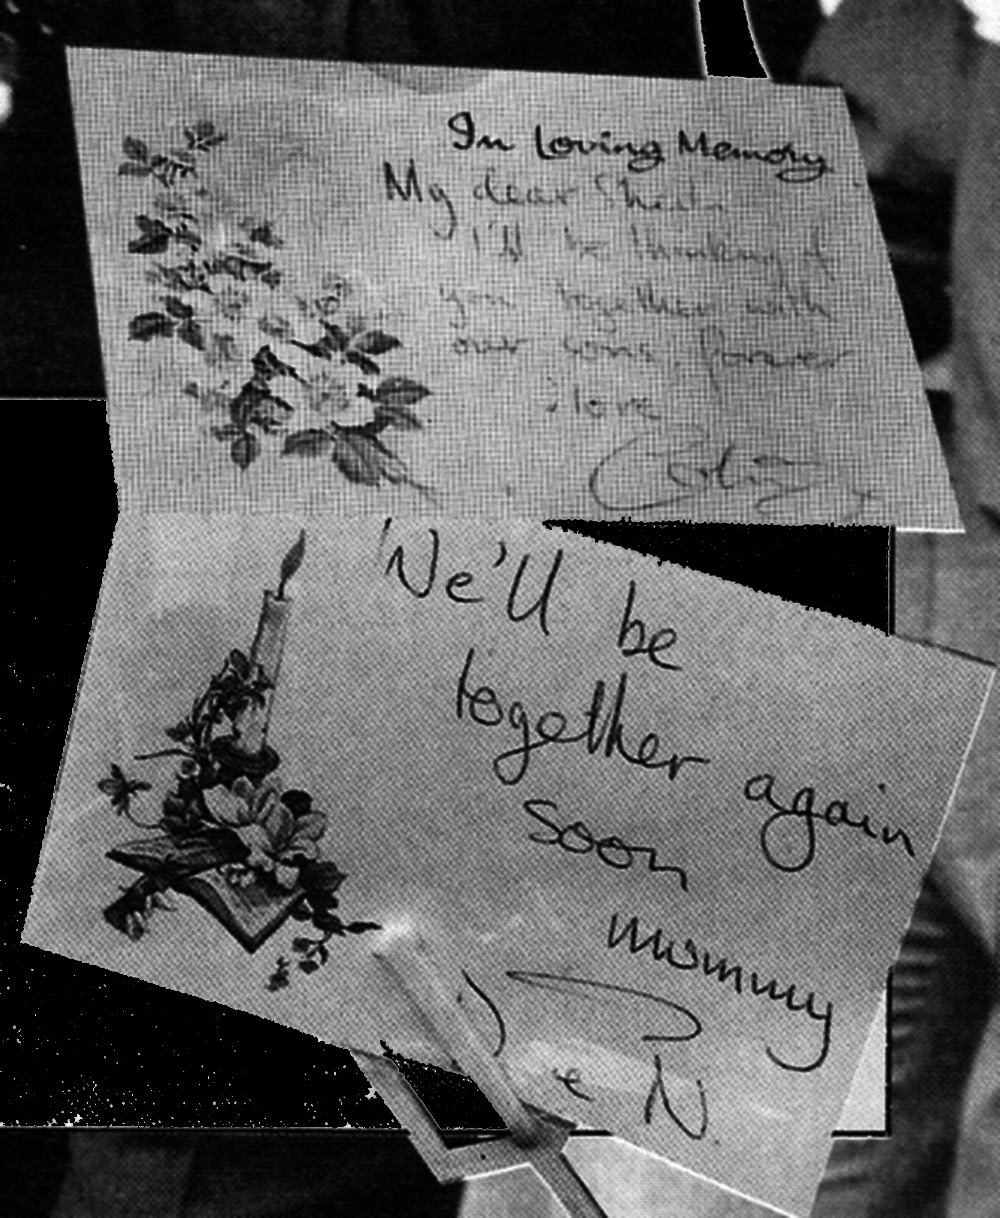 In Loving Memory
My dear Sheila
I'll be thinking of
you together with
our sons forever
love
Colin
We'll be
together again
soon
mommy
D & N.